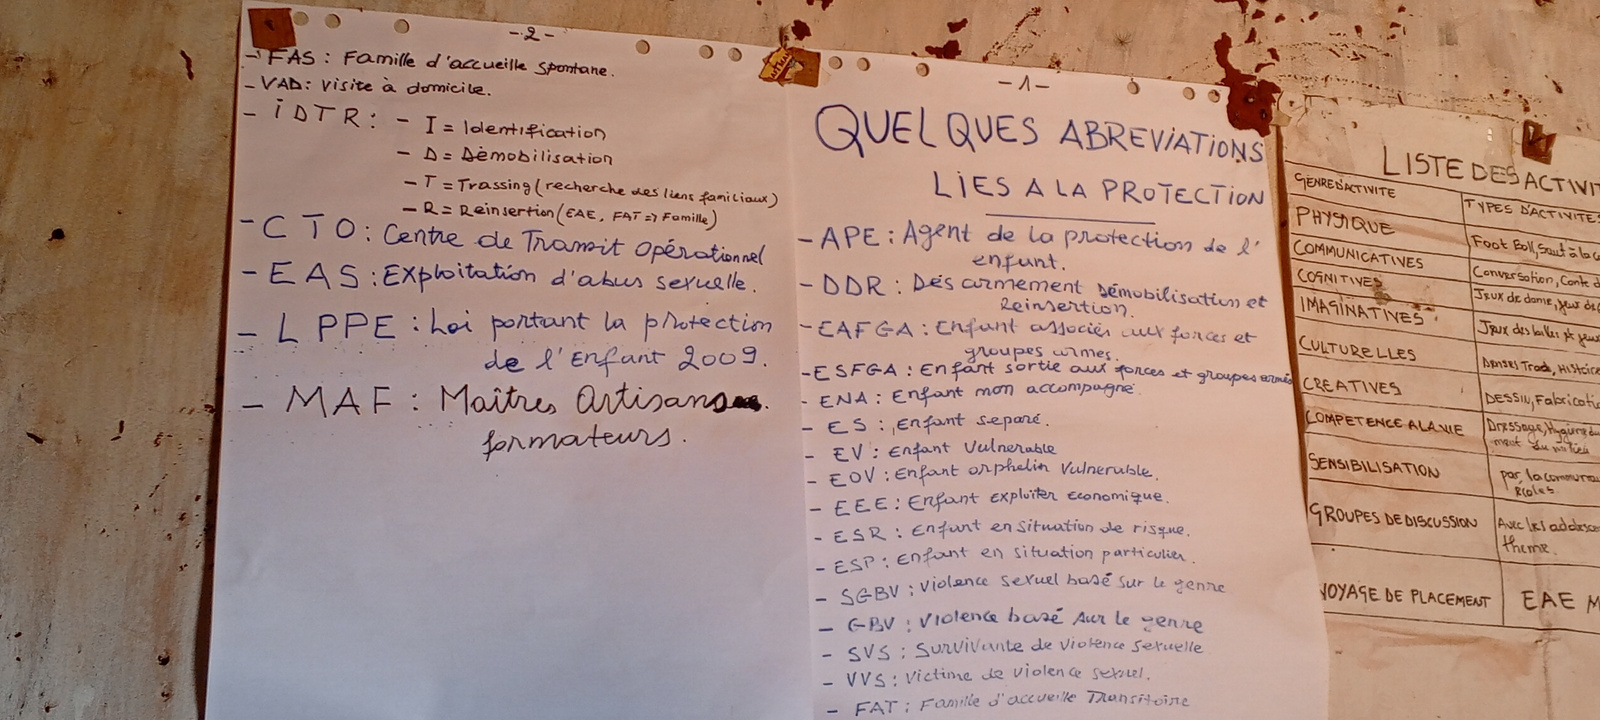 -2-
- FAS : Famille d'accueille spontane.
- VAD : visite à domicile.
- iDTR : - I = Identification
- D = Démobilisation
- T = Trassing (recherche des liens familiaux)
- R = Reinsertion (EAE, FAT => Famille)
- CTO : Centre de Transit Opérationnel
- EAS : Exploitation d'abus sexuelle.
- LPPE : Loi portant la protection
de l'Enfant 2009.
- MAF : Maîtres Artisans
formateurs.
-1-
QUELQUES ABREViATIONS
LIES A LA PROTECTION
- APE : Agent de la protection de l'
enfant.
- DDR : Désarmement Démobilisation et
Reinsertion.
- EAFGA : Enfant associés aux forces et
groupes armes.
- ESFGA : Enfant sortie aux forces et groupes armés
- ENA : Enfant non accompagné.
- ES : Enfant separé.
- EV : Enfant Vulnerable
- EOV : Enfant orphelin Vulnerable.
- EEE : Enfant exploiter Economique.
- ESR : Enfant en situation de risque.
- ESP : Enfant en situation particulier.
- SGBV : Violence sexuel basé sur le genre
- GBV : Violence basé sur le genre
- SVS : Survivante de violence sexuelle
- VVS : Victime de violence sexuel.
- FAT : Famille d'accueille Transitoire
LISTE DES ACTIVIT
GENRE D'ACTIVITE
TYPES D'ACTIVITE
PHYSIQUE
Foot Boll, Saut à la
COMMUNICATIVES
Conversation, Conte
COGNITIVES
Jeux de dame, jeux de
IMAGINATIVES
Jeux des balles et jeux
CULTURELLES
Danses Trad, Histoire
CREATIVES
DESSIN, Fabricati
COMPETENCE A LA VIE
Dressage, Hygiene du
ment du milieu
SENSIBILISATION
par, la commun
Ecoles
GROUPES DE DISCUSSION
Avec les adolesc
theme.
VOYAGE DE PLACEMENT
EAE M